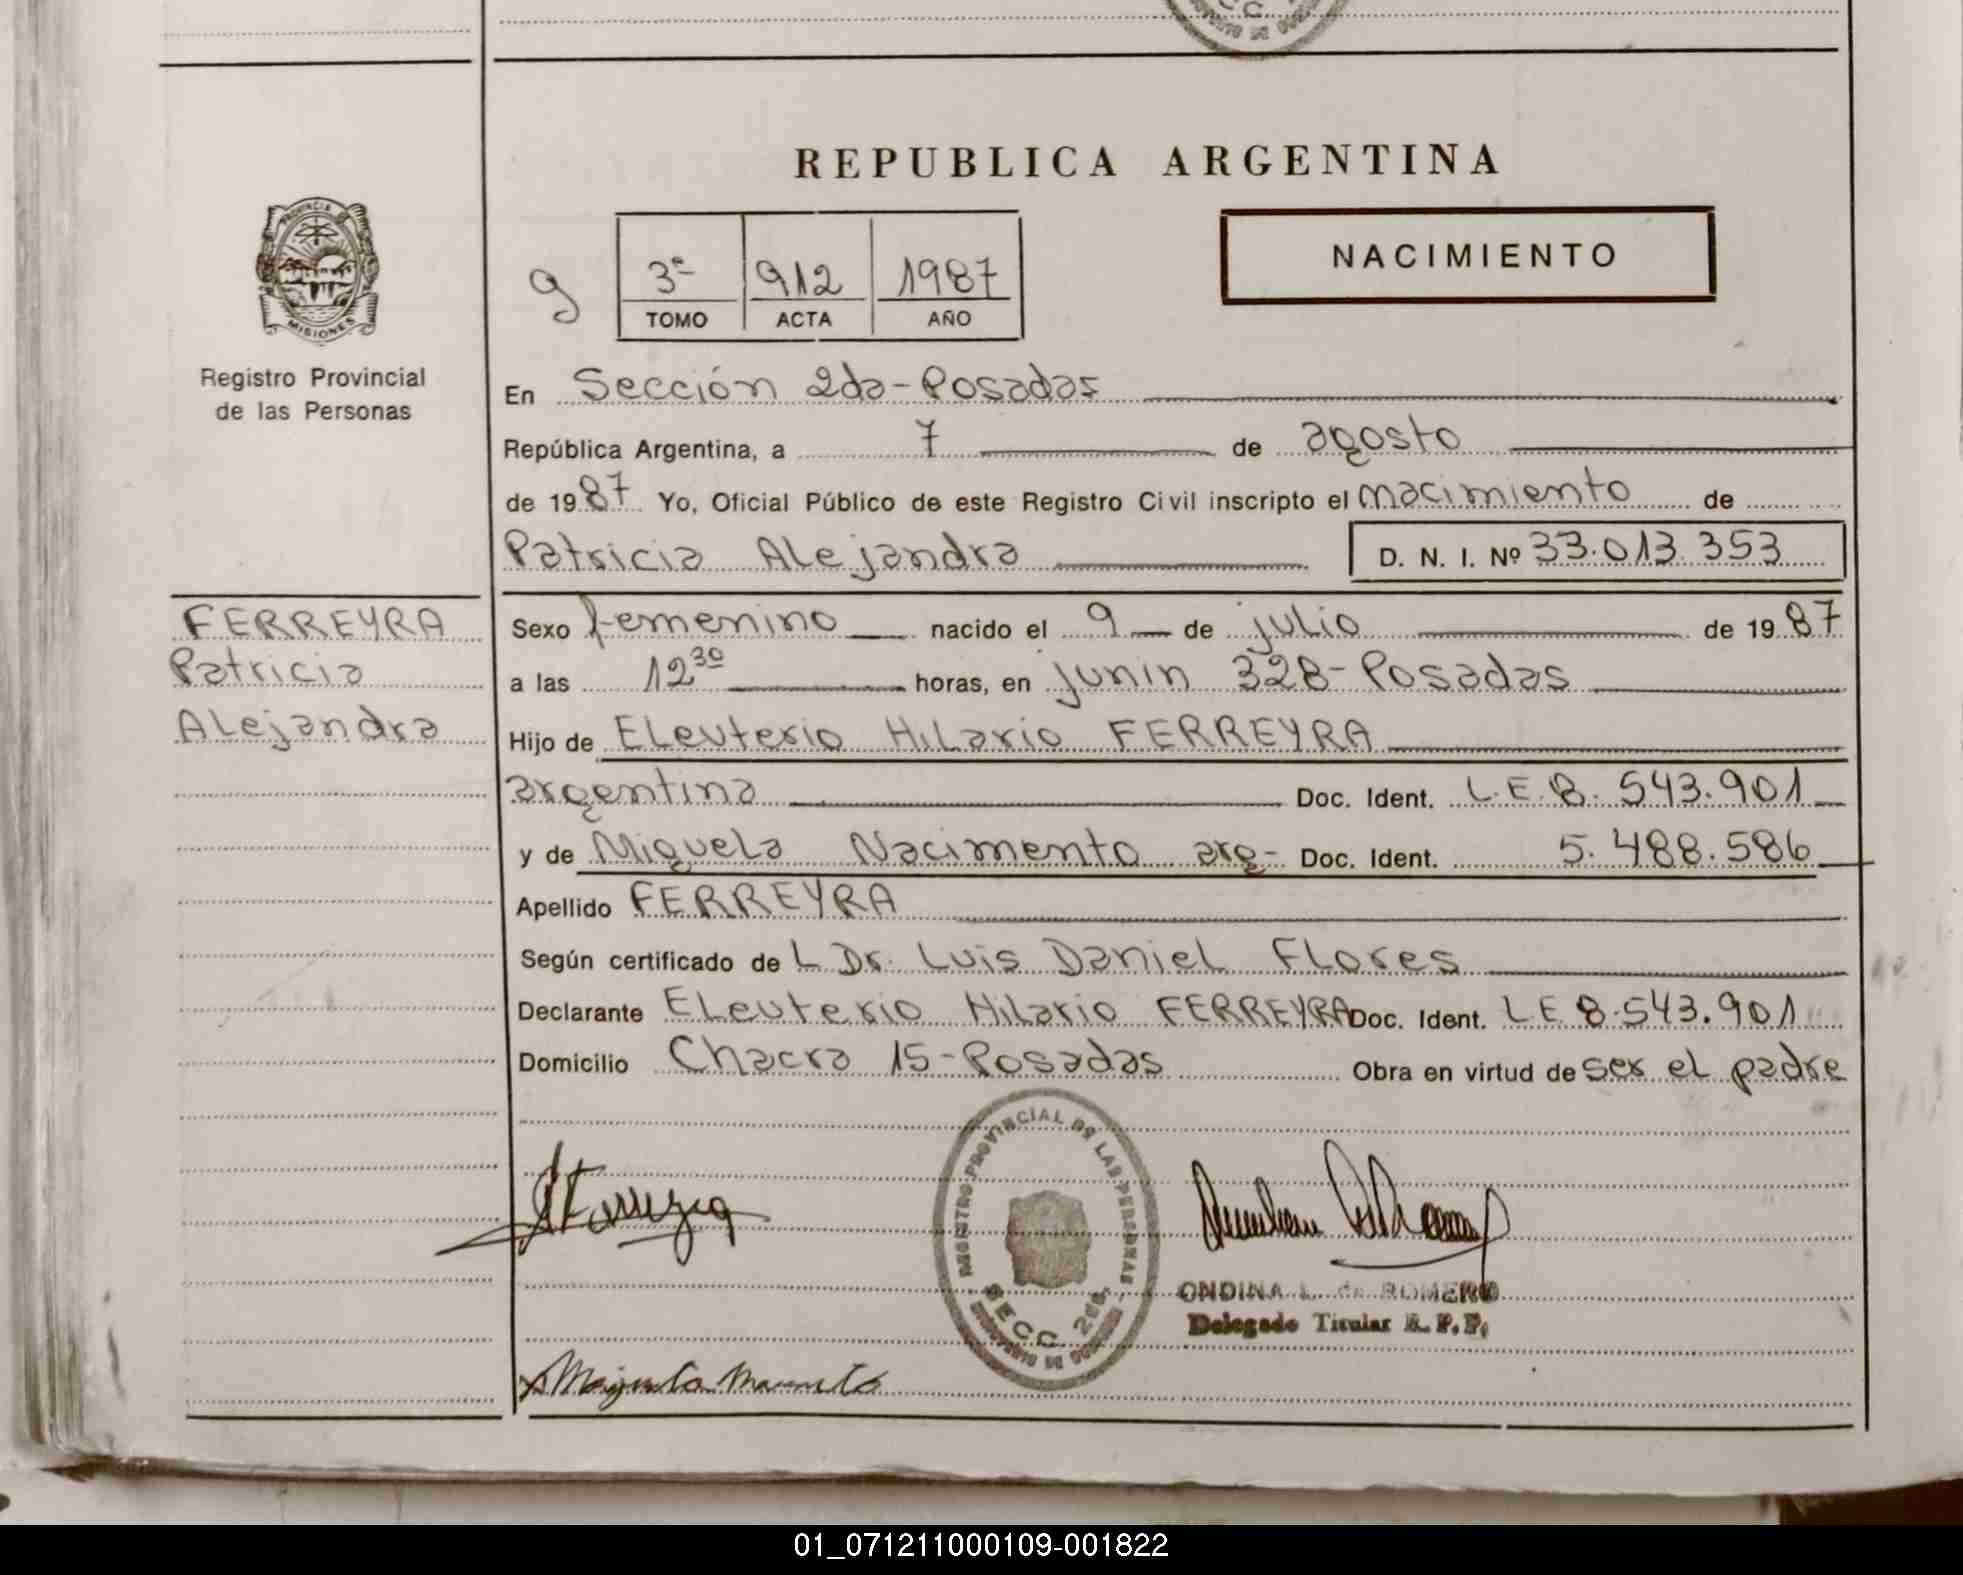 REPUBLICA ARGENTINA
PROVINCIA DE
MISIONES
Registro Provincial
de las Personas
9
3º 912 1987
TOMO ACTA AÑO
NACIMIENTO
En Sección 2da-Posadas
República Argentina, a 7 de agosto
de 1987 Yo, Oficial Público de este Registro Civil inscripto el nacimiento de
Patricia Alejandra D. N. I. Nº 33.013.353
FERREYRA
Patricia
Alejandra
Sexo femenino nacido el 9 de julio de 1987
a las 12³⁰ horas, en junin 328-Posadas
Hijo de Eleuterio Hilario FERREYRA
argentina Doc. Ident. L.E 8.543.901
y de Miguela Nacimento arg- Doc. Ident. 5.488.586
Apellido FERREYRA
Según certificado de L Dr. Luis Daniel Flores
Declarante Eleuterio Hilario FERREYRA Doc. Ident. LE 8.543.901
Domicilio Chacra 15-Posadas Obra en virtud de ser el padre
REGISTRO PROVINCIAL DE LAS PERSONAS
SECC. 2da.
ONDINA L. de ROMERO
Delegado Titular R.P.P.
01_071211000109-001822